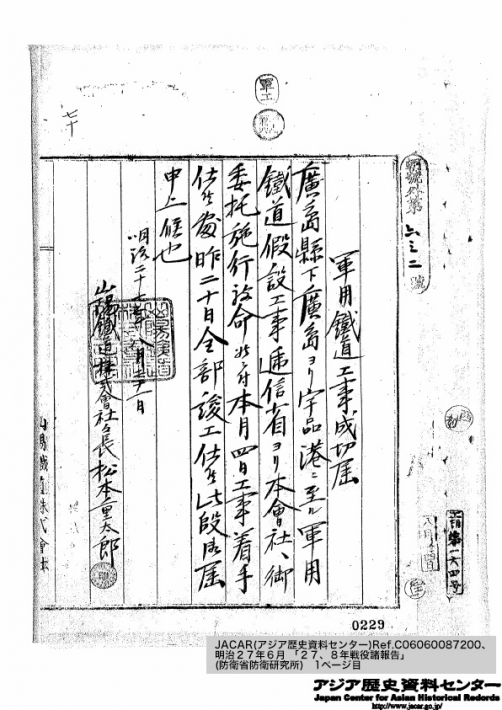 軍工
七十
號外第六三二號
軍用鐵道工事成功屆
廣島縣下廣島ヨリ宇品港ニ至ル軍用
鐵道假設工事遞信省ヨリ本會社ヘ御
委托施行被命候ニ付本月四日工事着手
仕候處昨二十日全部竣工仕候此段御屆
申上候也
明治二十七年八月廿一日
山陽鐵道株式會社々長松本重太郎
山陽鐵道株式會社
第一六四号
0229
JACAR(アジア歴史資料センター)Ref.C06060087200、
明治27年6月 「27、8年戦役諸報告」
(防衛省防衛研究所) 1ページ目
アジア歴史資料センター
Japan Center for Asian Historical Records
http://www.jacar.go.jp/